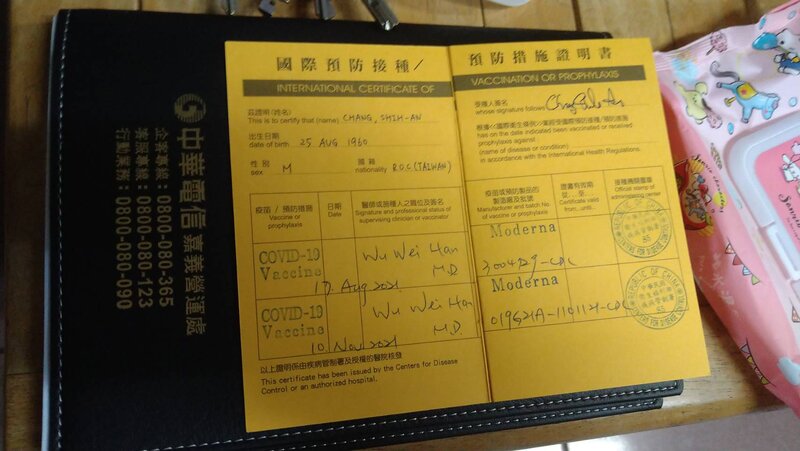 國際預防接種/
INTERNATIONAL CERTIFICATE OF
茲證明(姓名)
This is to certify that (name) CHANG, SHIH-AN
出生日期
date of birth 25 AUG 1960
性別
sex M
國籍
nationality R.O.C(TAIWAN)
疫苗/預防措施
Vaccine or
prophylaxis
日期
Date
醫師或施種人之職位及簽名
Signature and professional status of
supervising clinician or vaccinator
COVID-19
Vaccine
17 Aug 2021
Wu Wei Han
M.D.
COVID-19
Vaccine
10 Nov 2021
Wu Wei Han
M.D.
以上證明係由疾病管制署及授權的醫院核發
This certificate has been issued by the Centers for Disease
Control or an authorized hospital.
預防措施證明書
VACCINATION OR PROPHYLAXIS
受種人簽名
whose signature follows
has on the date indicated been vaccinated or received
prophylaxis against
(name of disease or condition)
in accordance with the International Health Regulations.
疫苗或預防製品的
製造廠及批號
Manufacturer and batch No.
of vaccine or prophylaxis
證書有效期
從...至...
Certificate valid
from...until...
Official stamp of
administering center
Moderna
Moderna
中華電信 嘉義營運處
企客專線:0800-080-365
客服專線:0800-080-123
行動業務:0800-080-090